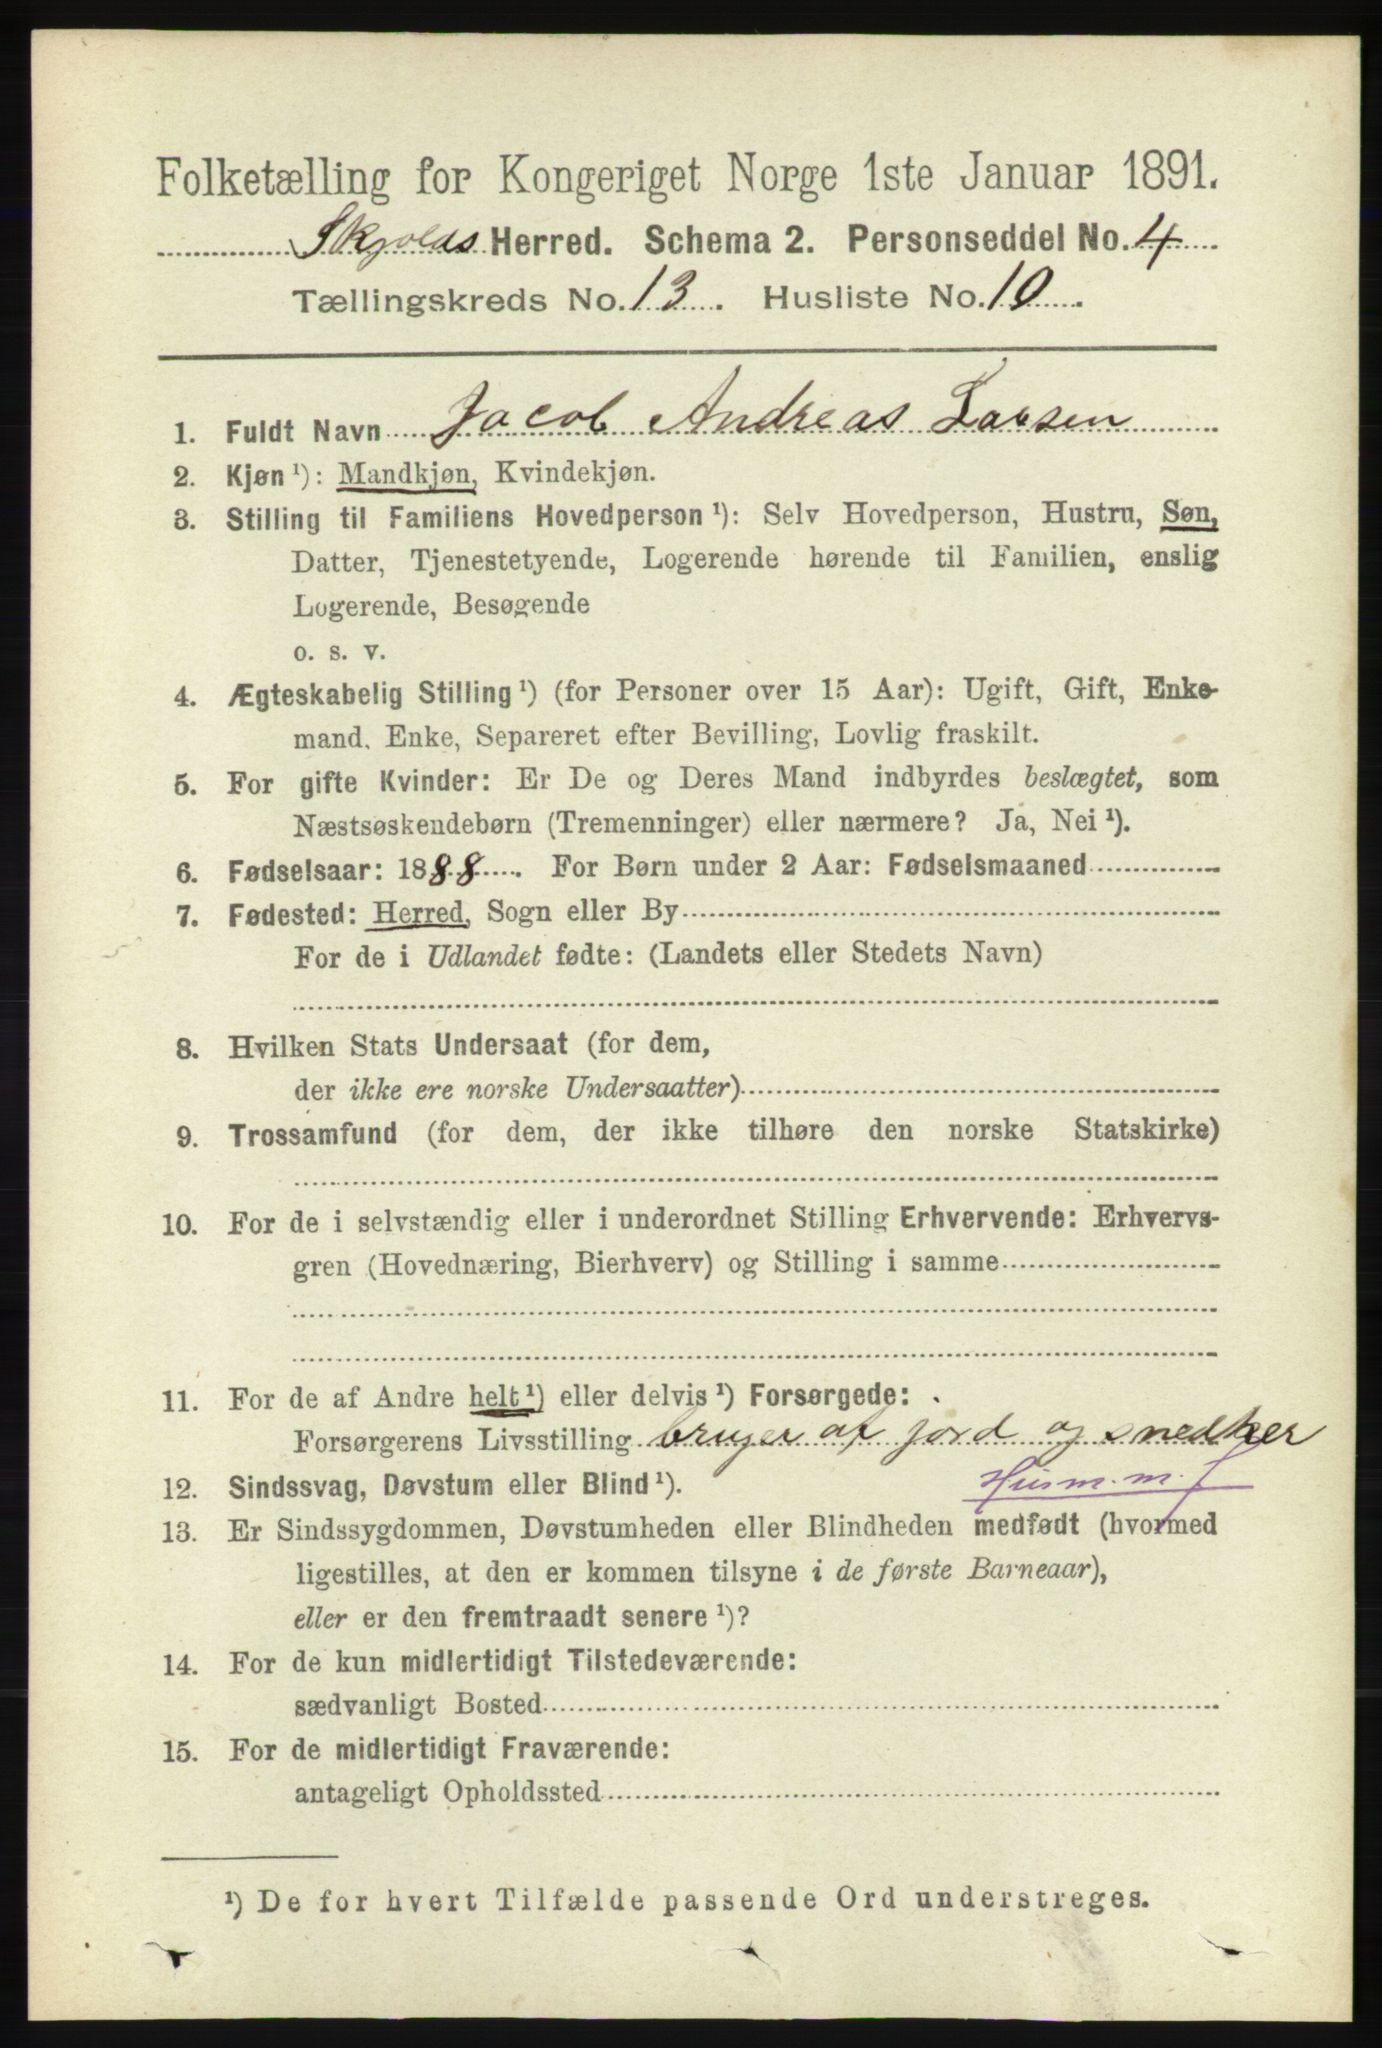 Folketælling for Kongeriget Norge 1ste Januar 1891.
Skjolds Herred. Schema 2. Personseddel No. 4
Tællingskreds No. 13. Husliste No. 10.
1. Fuldt Navn Jacob Andreas Larsen
2. Kjøn ¹): Mandkjøn, Kvindekjøn.
3. Stilling til Familiens Hovedperson ¹): Selv Hovedperson, Hustru, Søn,
Datter, Tjenestetyende, Logerende hørende til Familien, enslig
Logerende, Besøgende
o. s. v.
4. Ægteskabelig Stilling ¹) (for Personer over 15 Aar): Ugift, Gift, Enke-
mand, Enke, Separeret efter Bevilling, Lovlig fraskilt.
5. For gifte Kvinder: Er De og Deres Mand indbyrdes beslægtet, som
Næstsøskendebørn (Tremenninger) eller nærmere? Ja, Nei ¹).
6. Fødselsaar: 1888. For Børn under 2 Aar: Fødselsmaaned
7. Fødested: Herred, Sogn eller By
For de i Udlandet fødte: (Landets eller Stedets Navn)
8. Hvilken Stats Undersaat (for dem,
der ikke ere norske Undersaatter)
9. Trossamfund (for dem, der ikke tilhøre den norske Statskirke)
10. For de i selvstændig eller i underordnet Stilling Erhvervende: Erhvervs-
gren (Hovednæring, Bierhverv) og Stilling i samme
11. For de af Andre helt ¹) eller delvis ¹) Forsørgede:
Forsørgerens Livsstilling bruger af jord og snedker
12. Sindssvag, Døvstum eller Blind ¹). Husm. m. J
13. Er Sindssygdommen, Døvstumheden eller Blindheden medfødt (hvormed
ligestilles, at den er kommen tilsyne i de første Barneaar),
eller er den fremtraadt senere ¹)?
14. For de kun midlertidigt Tilstedeværende:
sædvanligt Bosted
15. For de midlertidigt Fraværende:
antageligt Opholdssted
¹) De for hvert Tilfælde passende Ord understreges.